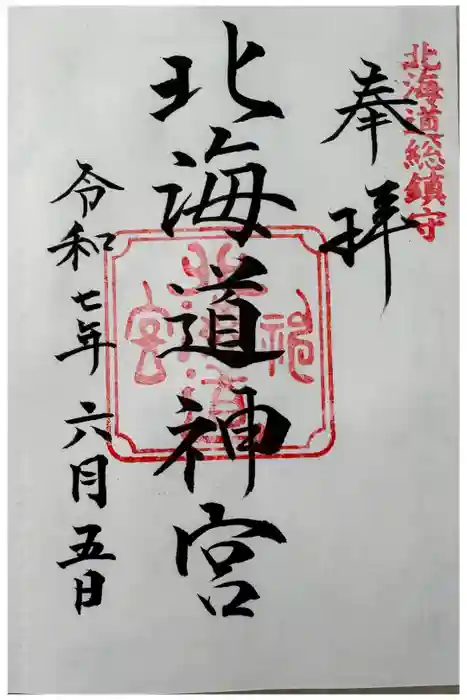 北海道総鎮守
奉拝
北海道神宮
北海道神宮
令和七年六月五日